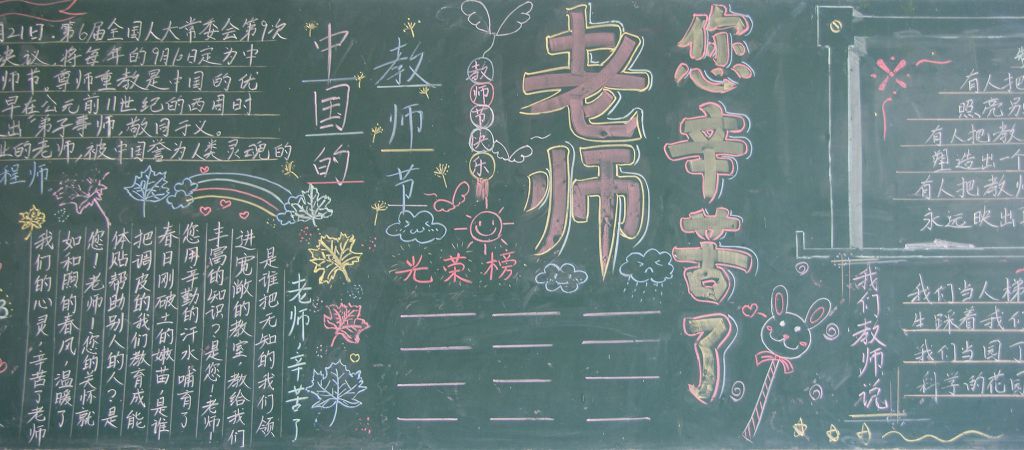 月21日·第6届全国人大常委会第9次
决议,将每年的9月10日定为中
师节。尊师重教是中国的优
早在公元前11世纪的西周时
出"弟子事师,敬同于父。
业的老师,被中国誉为人类灵魂的
程师
中国的
教师节
教师节快乐
老师
您辛苦了
光荣榜
老师辛苦了
是谁把无知的我们领
进宽敞的教室,教给我们
丰富的知识?是您!老师!
您用辛勤的汗水哺育了
春日刚破土的嫩苗!是谁
把调皮的我们教育成能
体贴帮助别人的人?是
您!老师!您的关怀就
如和煦的春风,温暖了
我们的心灵!辛苦了老师
有人把
照亮别
有人把教
塑造出一个
有人把教师
永远映出
我们教师说
我们当人梯
生踩着我们
我们当园丁
科学的花园